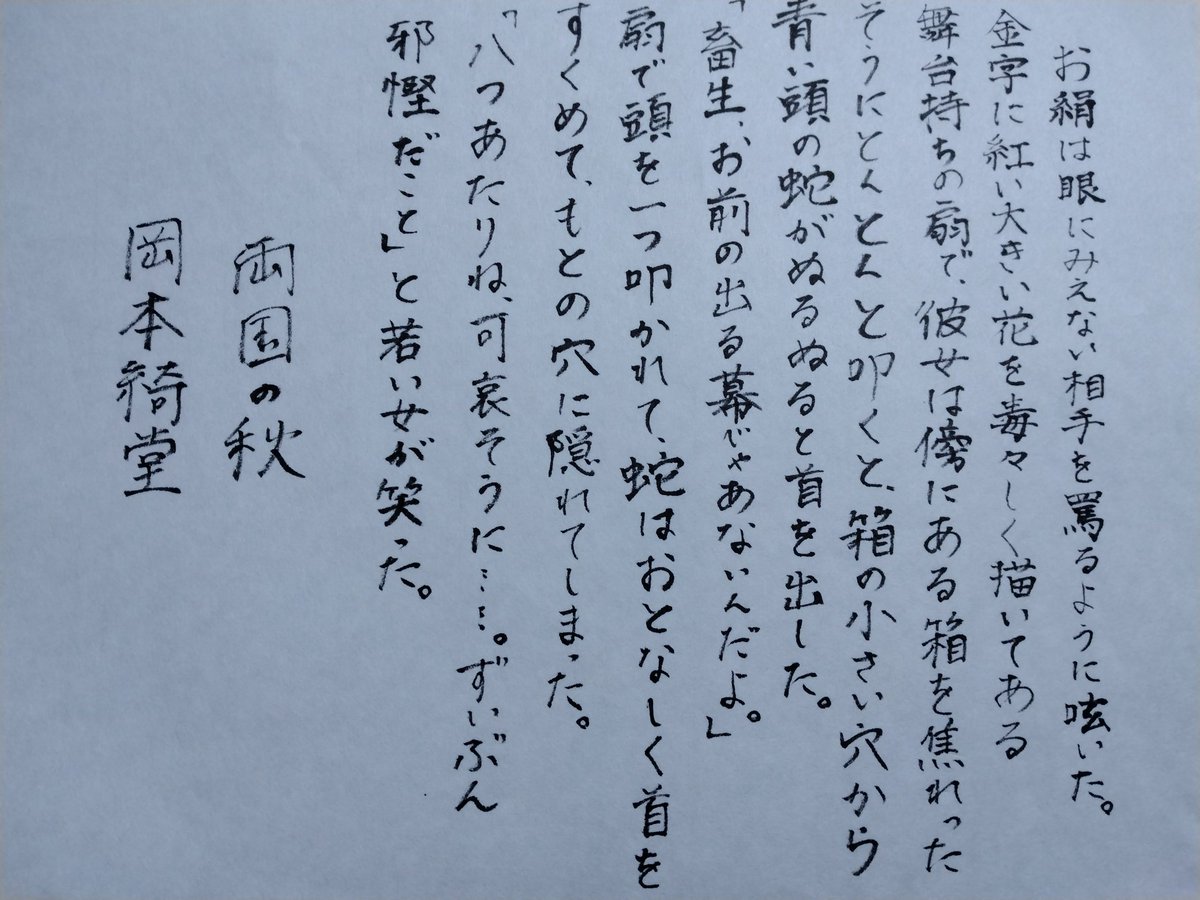 お絹は眼にみえない相手を罵るように呟いた。
金字に紅い大きい花を毒々しく描いてある
舞台持ちの扇で、彼女は傍にある箱を焦れった
そうにとんとんと叩くと、箱の小さい穴から
青い頭の蛇がぬるぬると首を出した。
「畜生、お前の出る幕じゃあないんだよ。」
扇で頭を一つ叩かれて、蛇はおとなしく首を
すくめて、もとの穴に隠れてしまった。
「八つあたりね、可哀そうに……。ずいぶん
邪慳だこと」と若い女が笑った。
両国の秋
岡本綺堂